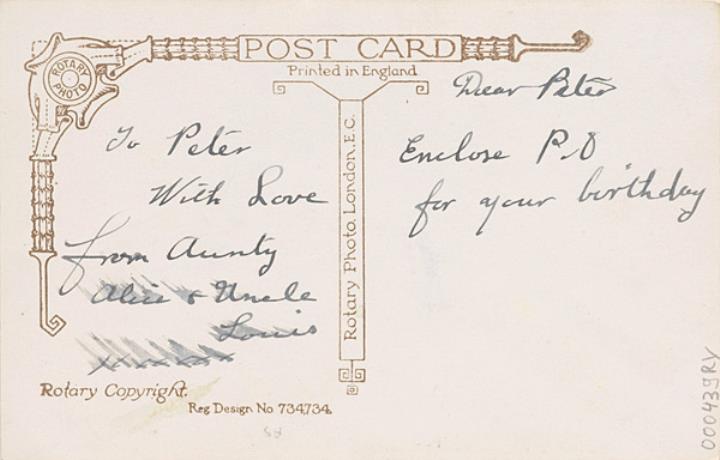 POST CARD
Printed in England
ROTARY PHOTO
To Peter
With Love
from Aunty
Alice & Uncle
Louis
xxxxxx
Rotary Photo, London, E.C.
Dear Peter
Enclose P.O
for your birthday
Rotary Copyright.
Reg Design No 734,734.
58
000439RV